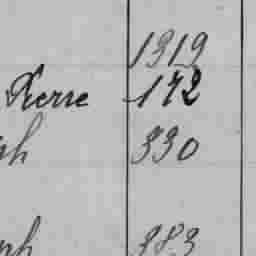 1319
Pierre 172
ph 330
ph 383